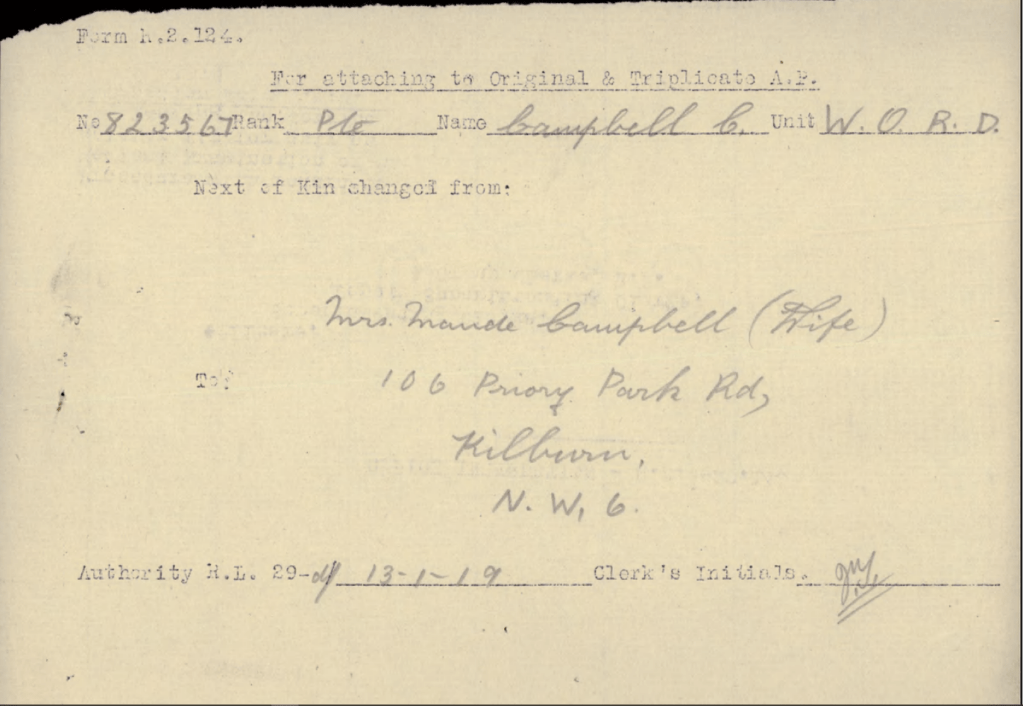 Form h.2.124.
For attaching to Original & Triplicate A.P.
No 823567 Rank Pte Name Campbell C. Unit W. O. R. D.
Next of Kin changed from:
Mrs. Maude Campbell (Wife)
To: 106 Priory Park Rd,
Kilburn,
N. W. 6.
Authority R.L. 29- d/ 13-1-19 Clerk's Initials.